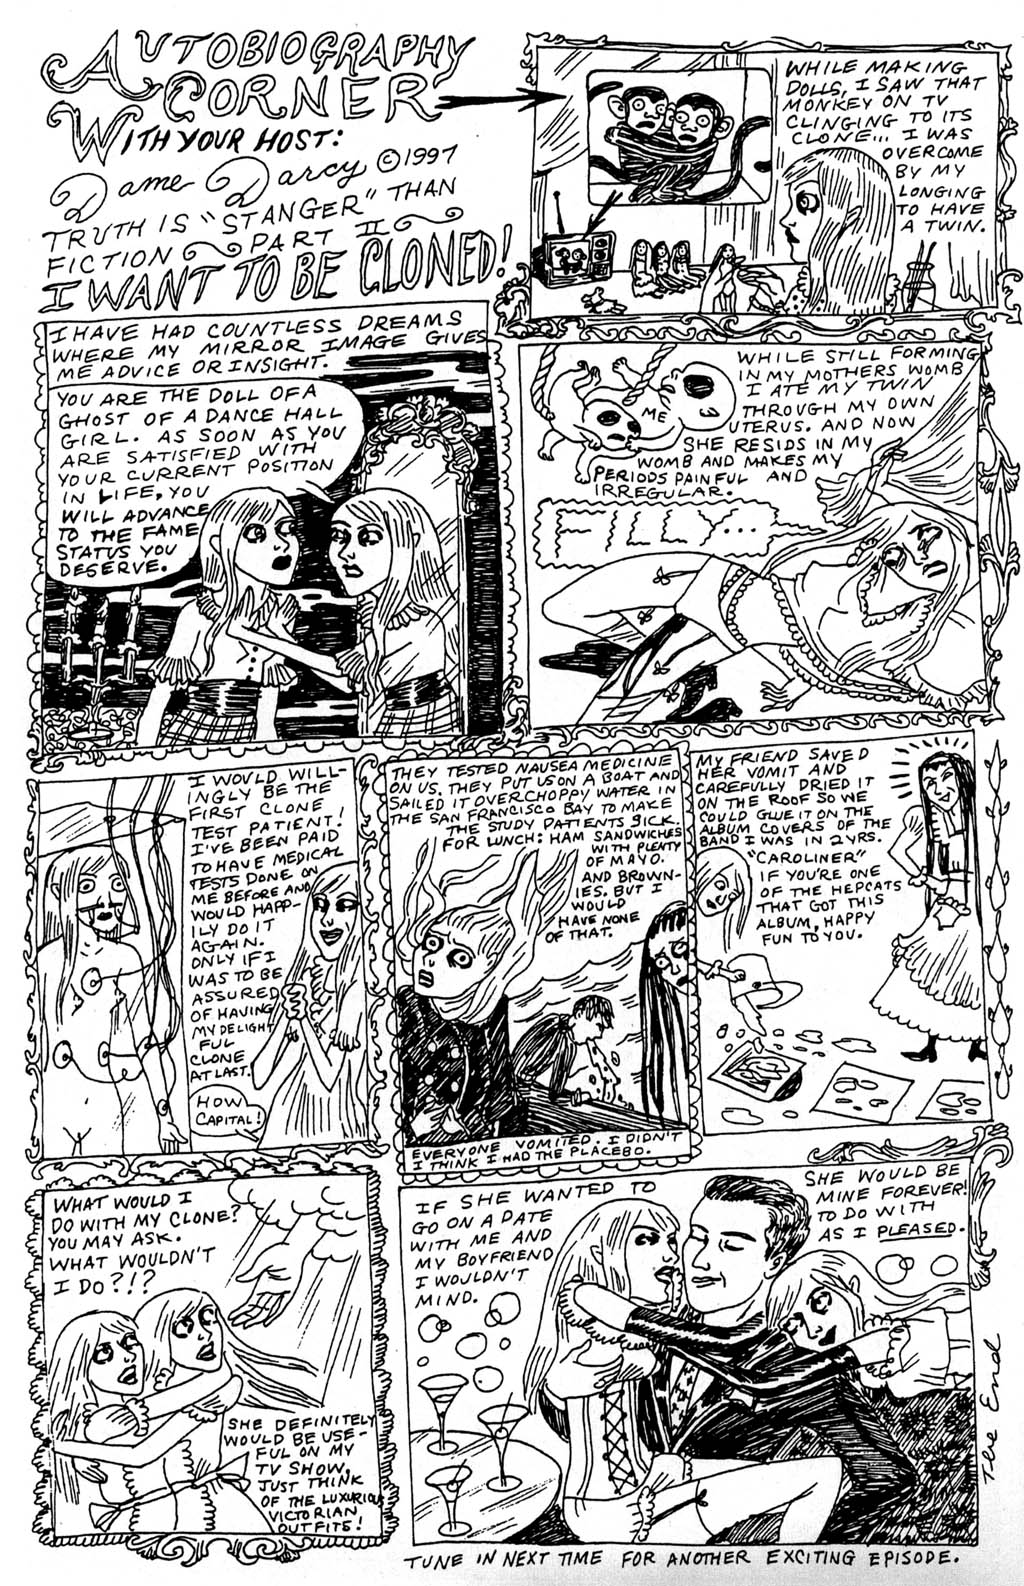 AUTOBIOGRAPHY
CORNER
WITH YOUR HOST:
Dame Darcy ©1997
TRUTH IS "STANGER" THAN
FICTION PART II
I WANT TO BE CLONED!
WHILE MAKING
DOLLS, I SAW THAT
MONKEY ON TV
CLINGING TO ITS
CLONE... I WAS
OVERCOME
BY MY
LONGING
TO HAVE
A TWIN.
I HAVE HAD COUNTLESS DREAMS
WHERE MY MIRROR IMAGE GIVES
ME ADVICE OR INSIGHT.
YOU ARE THE DOLL OF A
GHOST OF A DANCE HALL
GIRL. AS SOON AS YOU
ARE SATISFIED WITH
YOUR CURRENT POSITION
IN LIFE, YOU
WILL ADVANCE
TO THE FAME
STATUS YOU
DESERVE.
WHILE STILL FORMING
IN MY MOTHERS WOMB
I ATE MY TWIN
THROUGH MY OWN
UTERUS. AND NOW
SHE RESIDS IN MY
WOMB AND MAKES MY
PERIODS PAINFUL AND
IRREGULAR.
ME
FILLY...
I WOULD WILL-
INGLY BE THE
FIRST CLONE
TEST PATIENT!
I'VE BEEN PAID
TO HAVE MEDICAL
TESTS DONE ON
ME BEFORE AND
WOULD HAPP-
ILY DO IT
AGAIN.
ONLY IF I
WAS TO BE
ASSURED
OF HAVING
MY DELIGHT
FUL
CLONE
AT LAST.
HOW
CAPITAL!
THEY TESTED NAUSEA MEDICINE
ON US. THEY PUT US ON A BOAT AND
SAILED IT OVER CHOPPY WATER IN
THE SAN FRANCISCO BAY TO MAKE
THE STUDY PATIENTS SICK.
FOR LUNCH: HAM SANDWICHES
WITH PLENTY
OF MAYO.
AND BROWN-
IES. BUT I
WOULD
HAVE NONE
OF THAT.
EVERYONE VOMITED. I DIDN'T
I THINK I HAD THE PLACEBO.
MY FRIEND SAVED
HER VOMIT AND
CAREFULLY DRIED IT
ON THE ROOF SO WE
COULD GLUE IT ON THE
ALBUM COVERS OF THE
BAND I WAS IN 2 YRS.
"CAROLINER"
IF YOU'RE ONE
OF THE HEPCATS
THAT GOT THIS
ALBUM, HAPPY
FUN TO YOU.
WHAT WOULD I
DO WITH MY CLONE?
YOU MAY ASK.
WHAT WOULDN'T
I DO?!?
SHE DEFINITELY
WOULD BE USE-
FUL ON MY
TV SHOW.
JUST THINK
OF THE LUXURIOUS
VICTORIAN
OUTFITS!
IF SHE WANTED TO
GO ON A DATE
WITH ME AND
MY BOYFRIEND
I WOULDN'T
MIND.
SHE WOULD BE
MINE FOREVER!
TO DO WITH
AS I PLEASED.
The End
TUNE IN NEXT TIME FOR ANOTHER EXCITING EPISODE.